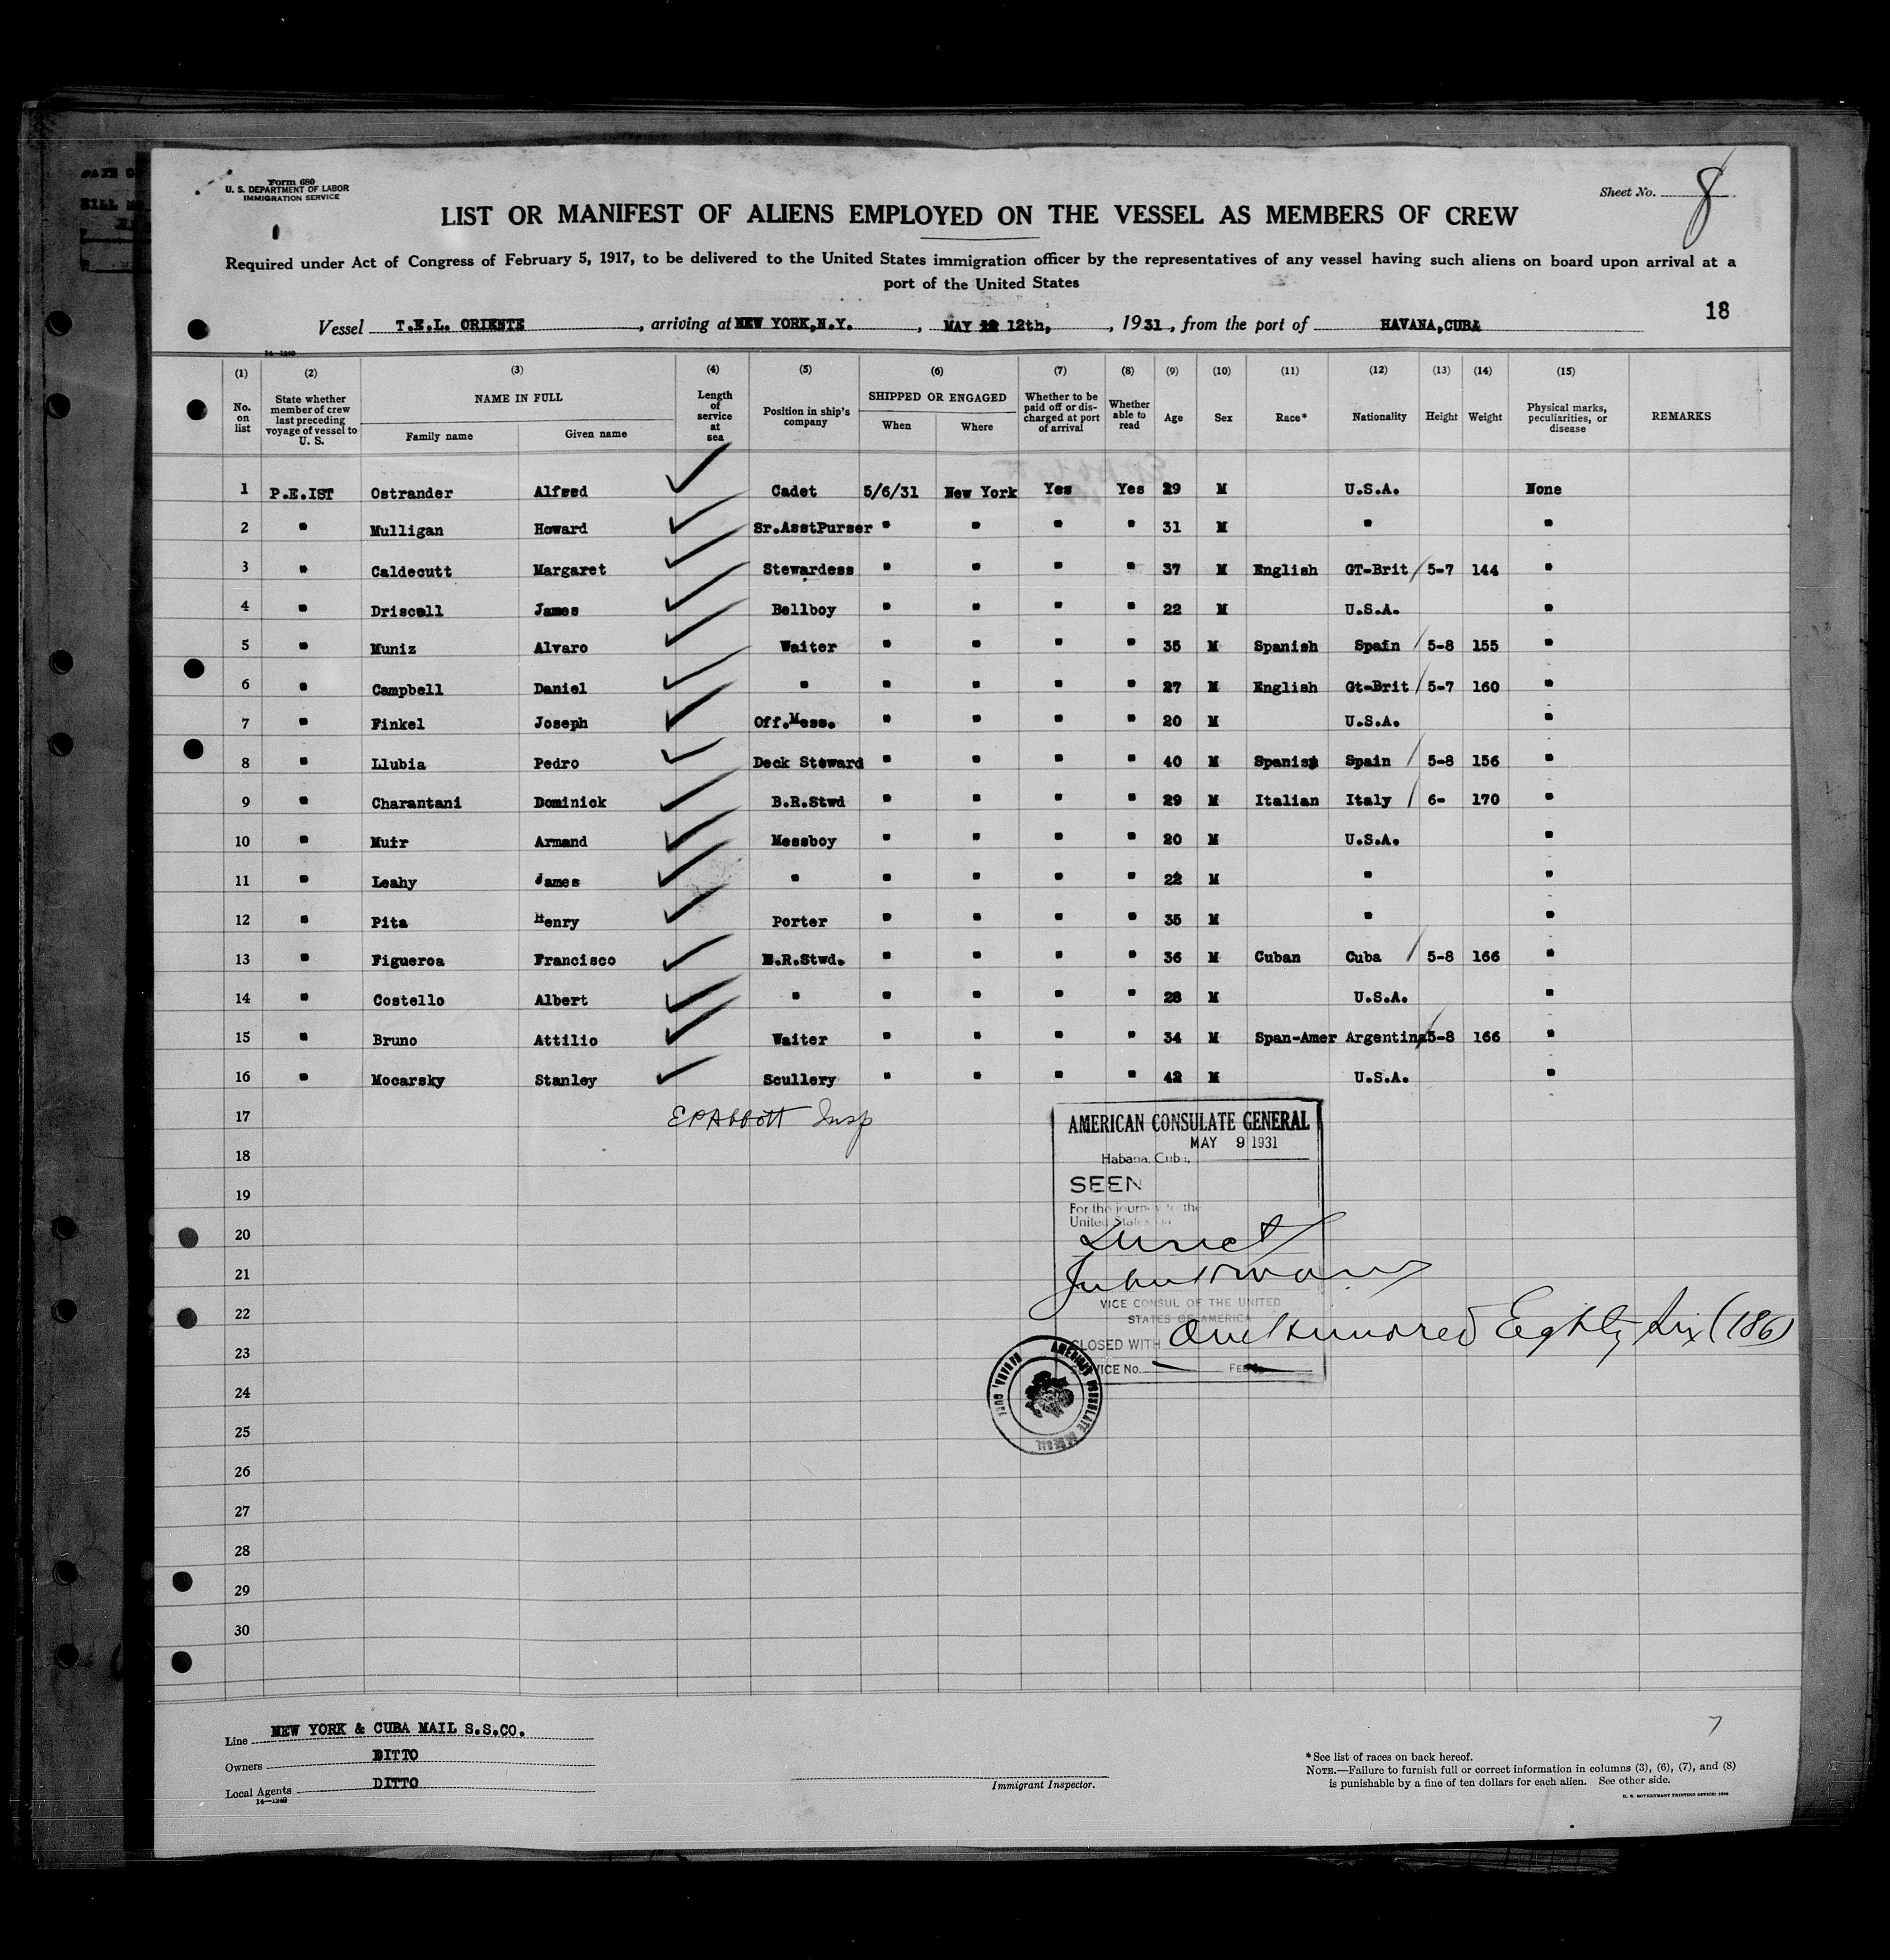 Form 680
U. S. DEPARTMENT OF LABOR
IMMIGRATION SERVICE
Sheet No. 8
LIST OR MANIFEST OF ALIENS EMPLOYED ON THE VESSEL AS MEMBERS OF CREW
Required under Act of Congress of February 5, 1917, to be delivered to the United States immigration officer by the representatives of any vessel having such aliens on board upon arrival at a
port of the United States
18
Vessel T.E.L. ORIENTE, arriving at NEW YORK,N.Y., MAY 12th, 1931, from the port of HAVANA,CUBA
14—1240
(1) (2) (3) (4) (5) (6) (7) (8) (9) (10) (11) (12) (13) (14) (15)
No. on list | State whether member of crew last preceding voyage of vessel to U. S. | NAME IN FULL | Family name | Given name | Length of service at sea | Position in ship's company | SHIPPED OR ENGAGED | When | Where | Whether to be paid off or discharged at port of arrival | Whether able to read | Age | Sex | Race* | Nationality | Height | Weight | Physical marks, peculiarities, or disease | REMARKS
1 P.E.IST Ostrander Alfred Cadet 5/6/31 New York Yes Yes 29 M U.S.A. None
2 " Mulligan Howard Sr.AsstPurser " " " " 31 M " "
3 " Caldecutt Margaret Stewardess " " " " 37 M English GT-Brit 5-7 144 "
4 " Driscoll James Bellboy " " " " 22 M U.S.A. "
5 " Muniz Alvaro Waiter " " " " 35 M Spanish Spain 5-8 155 "
6 " Campbell Daniel " " " " " 27 M English Gt-Brit 5-7 160 "
7 " Finkel Joseph Off.Mess. " " " " 20 M U.S.A. "
8 " Llubia Pedro Deck Steward " " " " 40 M Spanish Spain 5-8 156 "
9 " Charantani Dominick B.R.Stwd " " " " 29 M Italian Italy 6- 170 "
10 " Muir Armand Messboy " " " " 20 M U.S.A. "
11 " Leahy James " " " " " 22 M " "
12 " Pita Henry Porter " " " " 35 M " "
13 " Figueroa Francisco B.R.Stwd. " " " " 36 M Cuban Cuba 5-8 166 "
14 " Costello Albert " " " " " 28 M U.S.A. "
15 " Bruno Attilio Waiter " " " " 34 M Span-Amer Argentina 5-8 166 "
16 " Mocarsky Stanley Scullery " " " " 42 M U.S.A. "
17 EPAbbott Insp
18
19
20
21
22
23
24
25
26
27
28
29
30
AMERICAN CONSULATE GENERAL
MAY 9 1931
Habana, Cuba,
SEEN
For the journey to the
United States
VICE CONSUL OF THE UNITED
STATES OF AMERICA
CLOSED WITH One Hundred Eighty Six (186)
SERVICE No. FEE
AMERICAN CONSULATE GENERAL
HABANA, CUBA
Line NEW YORK & CUBA MAIL S.S.CO.
Owners DITTO
Local Agents DITTO
14—1240
Immigrant Inspector.
7
*See list of races on back hereof.
NOTE.—Failure to furnish full or correct information in columns (3), (6), (7), and (8)
is punishable by a fine of ten dollars for each alien. See other side.
U. S. GOVERNMENT PRINTING OFFICE: